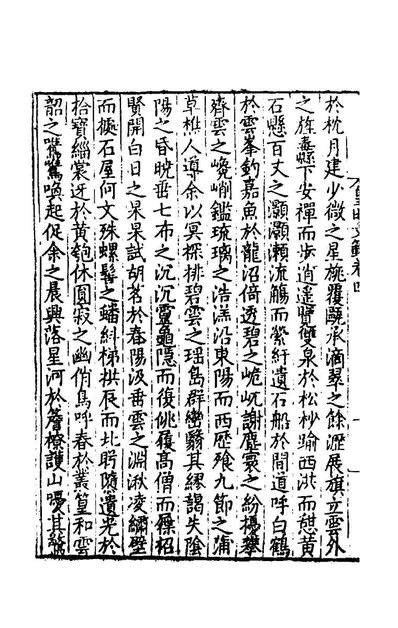 於枕月建少微之星旄覆顋承滴翠之餘瀝展旗立雲外
之旌毒縣下安禪而步逍遙覽雙泉於松杪踰西洪而憇黃
石懸百丈之灝灝瀨流觴而縈紆遺石船於間道呼白鶴
於雲峯釣嘉魚於龍沼倚透碧之峗屼謝塵寰之紛擾攀
齊雲之巉峭鑑琉璃之浩溔沿東陽而西歷飱九節之蒲
草樵人導余以冥探排碧雲之瑶島群巒翳其繆謁失陰
陽之昏曉垂七布之沉沉靈龜隱而復俶履高僧而
賢開白日之杲杲試胡茗於春陽汲番雲之淵湫凌繡壁
而攄石屋何文殊螺髻之蟠糾梯拱辰而北眄隨遺光於
拾寶緇裳迓於黃麭休圓寂之幽俏鳥呼春於叢篁和雲
韶之鶯喚起促余之晨興落星河於簷橑護山嗄其
皇明文 卷四